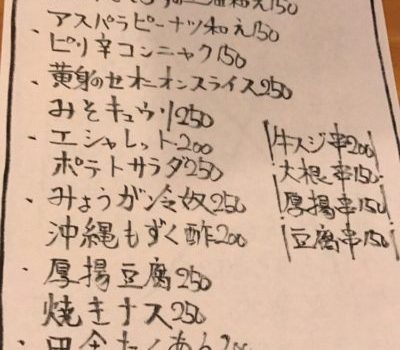 和え150
アスパラピーナツ和え150
ピリ辛コンニャク150
黄身のせオニオンスライス250
みそキュウリ250
エシャレット200
ポテトサラダ250
みょうが冷奴250
沖縄もずく酢200
厚揚豆腐250
焼きナス250
牛スジ串200
大根串150
厚揚串150
豆腐串150